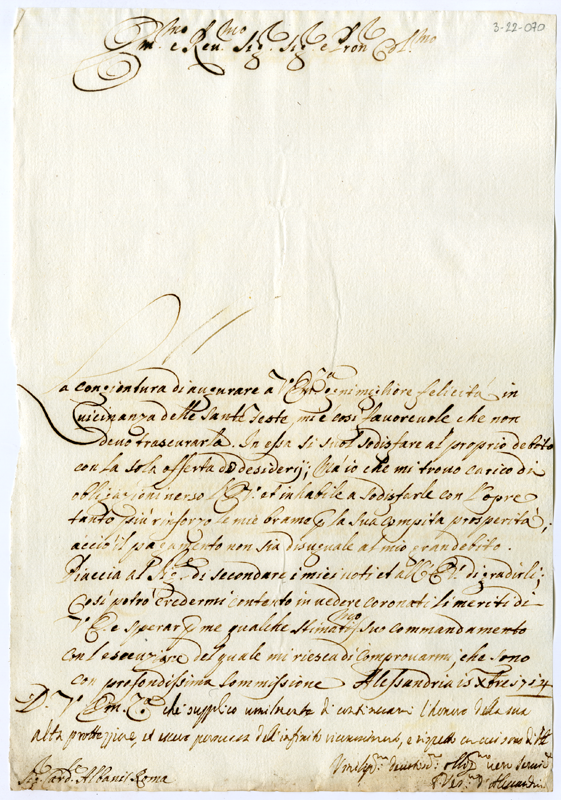 3-22-070
Em.mo e Rev.mo Sig. Sig. e Pron Col.mo
La congiontura di augurare a V. Em.a ogni migliore felicità in
vicinanza delle Sante Feste, mi è così favorevole che non
devo trascurarla. In essa si suol sodisfare al proprio debito
con la sola offerta di desiderij; Ma io che mi trovo carico di
obligazioni verso l'E.V. et inhabile a sodisfarle con l'opre
tanto più rinforzo le mie bramo p la sua compita prosperità,
acciò il pagamento non sia disuguale al mio gran debito.
Piaccia al Sig.re di secondare i miei voti et all'E.V. di gradirli;
così potrò credermi contento in vedere coronati li meriti di
V.E. e sperar p me qualche stimatis.mo suo commandamento
con l'esecuzione del quale mi riesca di comprovarmi, che sono
con profondissima sommissione Alessandria 15 Xbre 1714
D. V. Em.za che supplico umilmente di continuarmi l'honor della sua
alta protezzione, et
Sig. Card. Albani Roma
d'Alessandria